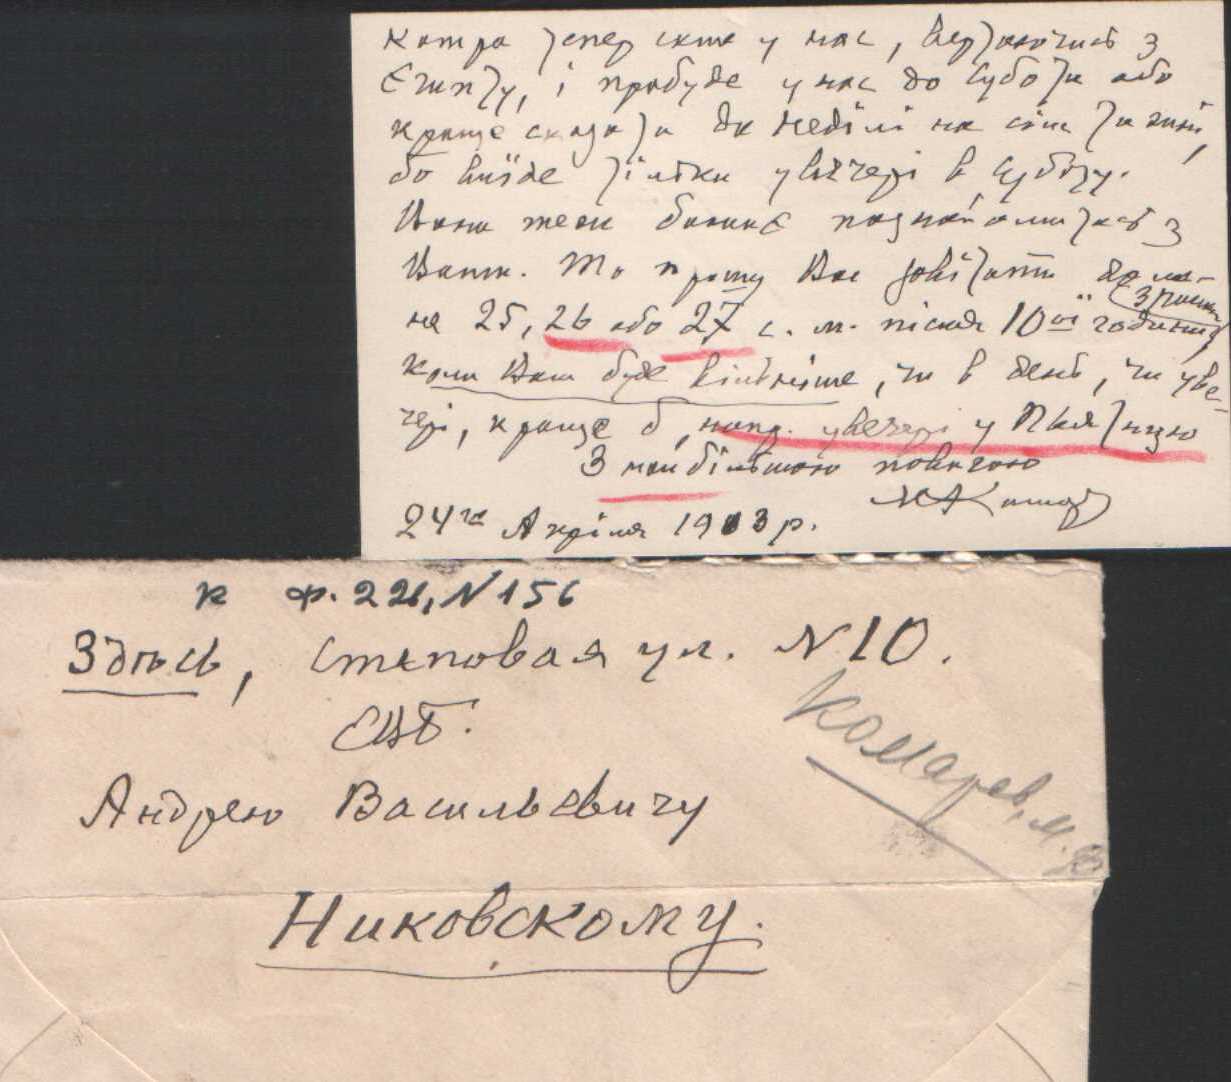 котра тепер єсть у нас, вертаючись з
Єгипту, і пробуде у нас до суботи або
краще сказати до неділі на сім тижні,
бо виїде тільки увечері в суботу.
Вона теж бажає познайомитись з
Вами. То прошу Вас завітати до ме-
не 25, 26 або 27 с. м. після 10ої години,
коли Вам буде вільніше, чи в день, чи уве-
чері, краще б, напр. увечері у Пьятницю
З найбільшою повагою
24го Апріля 1913 р.
к ф. 226, N 156
Здѣсь, Степовая ул. N 10.
ЕВБ.
Андрею Васильевичу
Комарев, М. Ф.
Никовскому.